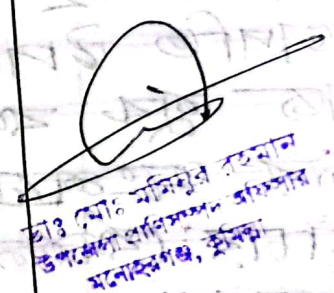 ডাঃ মোঃ মনিমুর রহমান
উপজেলা প্রাণিসম্পদ অফিসার
মনোহরগঞ্জ, কুমিল্লা